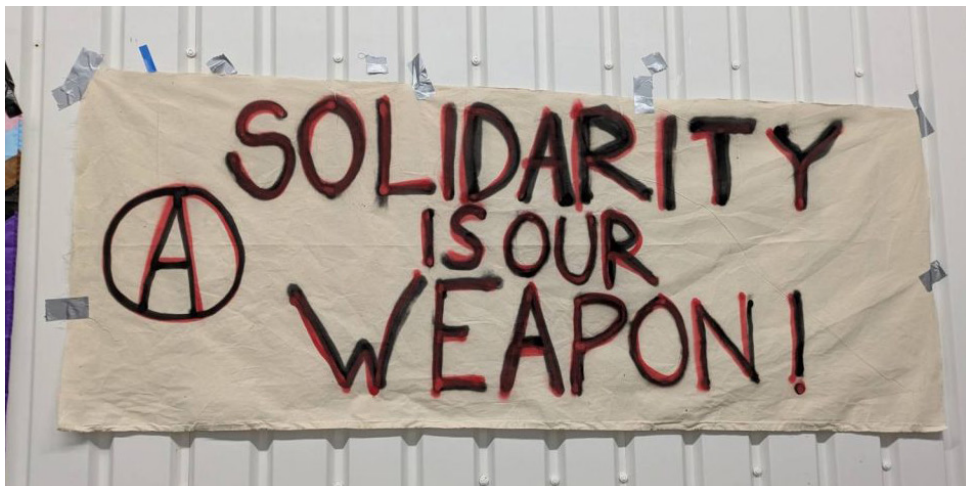 SOLIDARITY
IS OUR
WEAPON!